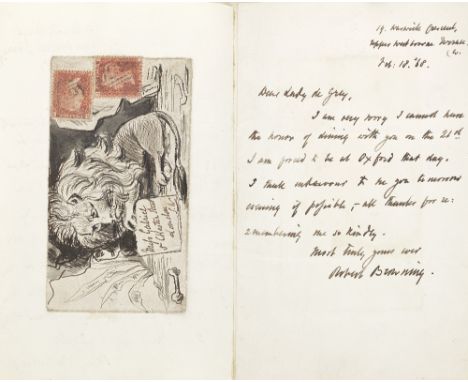 19. Warwick Crescent,
Upper Westbourne Terrace,
W.
Feb: 18. '68.
Dear Lady de Grey,
I am very sorry I cannot have
the honor of dining with you on the 21st
I am forced to be at Oxford that day.
I shall endeavour to see you tomorrow
evening if possible,- all thanks for re:
:membering me so kindly.
Most truly yours ever
Robert Browning.